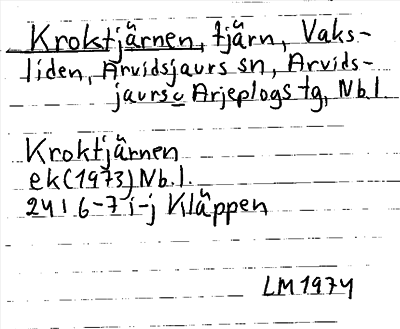 Kroktjärnen, tjärn, Vaks-
liden, Arvidsjaurs sn, Arvids-
jaurs o Arjeplogs tg, Nb.l.
Kroktjärnen
ek (1973) Nb.l.
24 I 6-7 i-j Kläppen
LM 1974